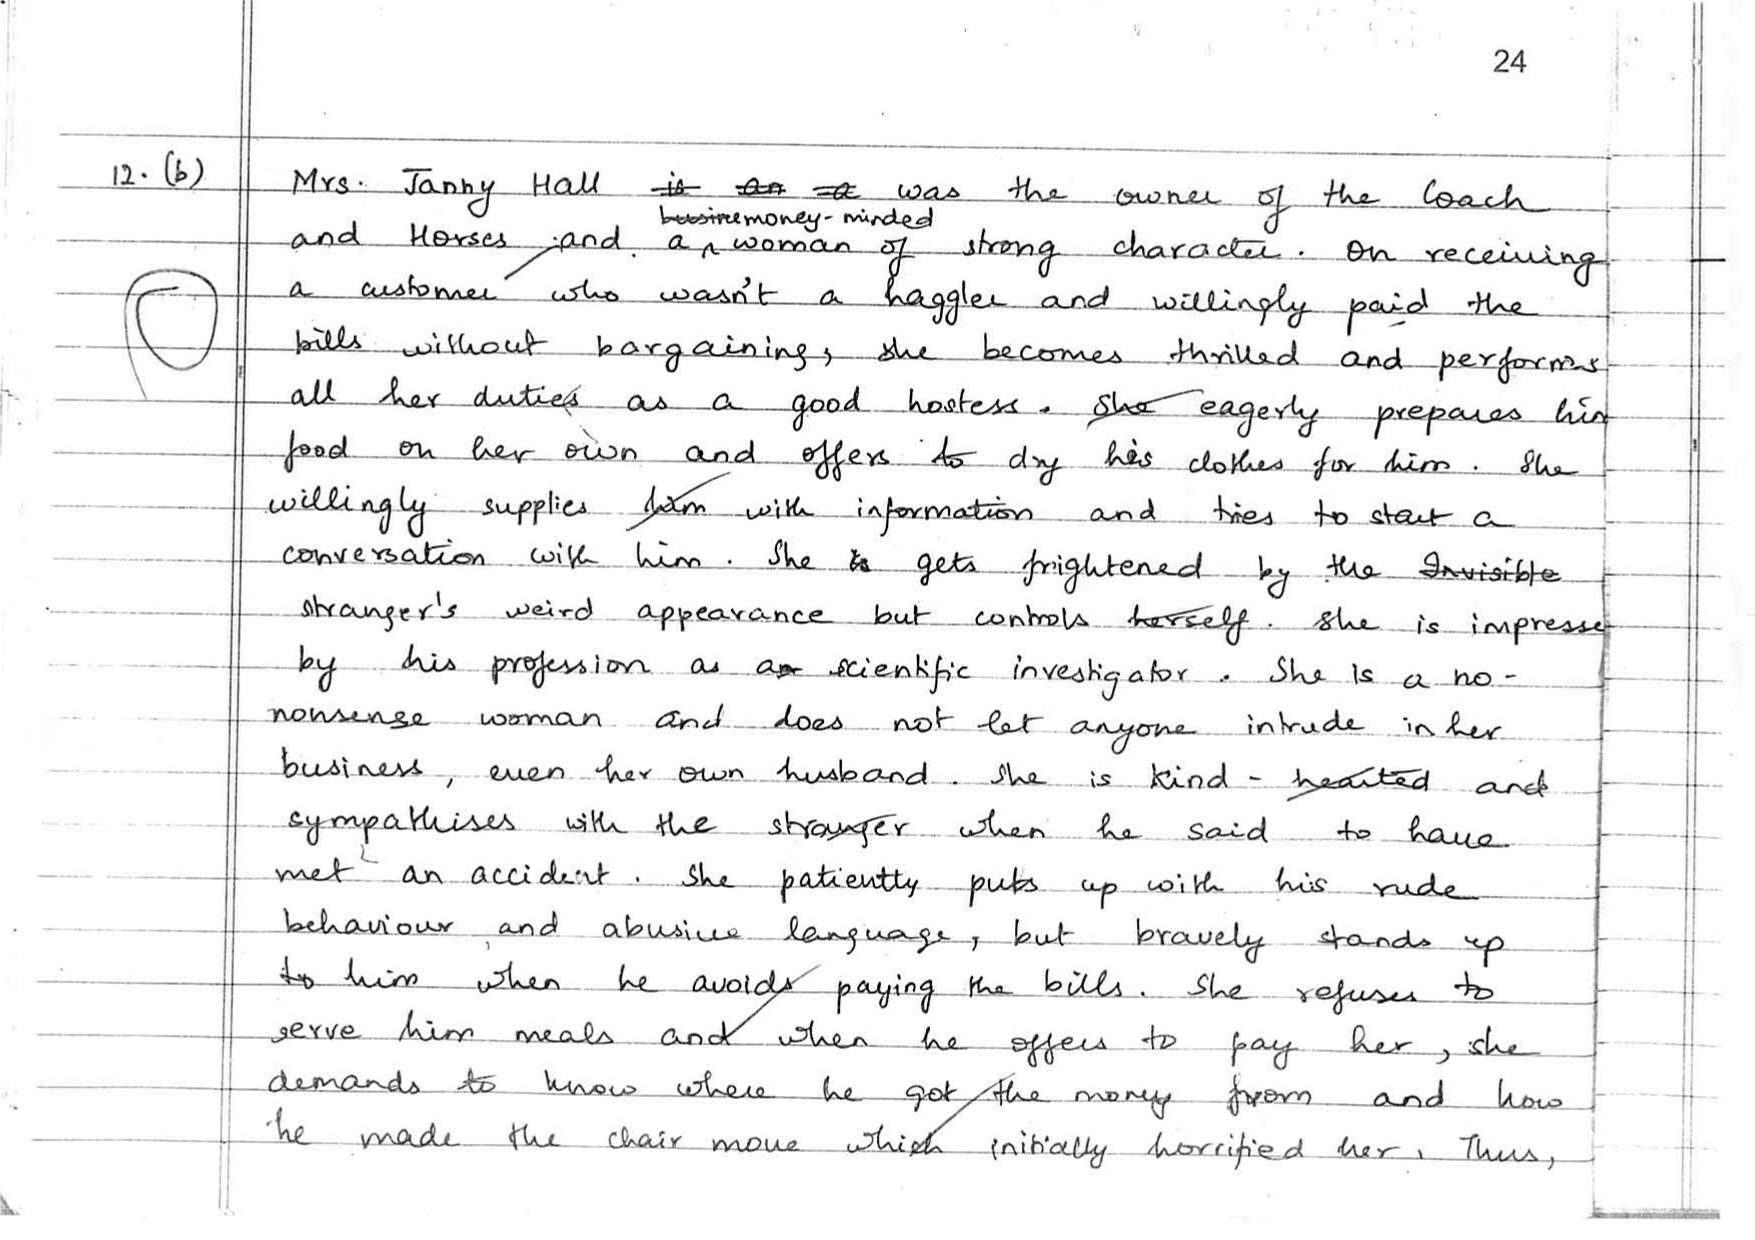 24
12. (b) Mrs. Janny Hall is an a was the owner of the Coach
businemoney-minded
and Horses and a woman of strong character. On receiving
a customer who wasn't a haggler and willingly paid the
bills without bargaining, she becomes thrilled and performs
all her duties as a good hostess. She eagerly prepares him
food on her own and offers to dry his clothes for him. She
willingly supplies him with information and tries to start a
conversation with him. She is gets frightened by the Invisible
stranger's weird appearance but controls herself. She is impresse
by his profession as an scientific investigator. She is a no-
nonsense woman and does not let anyone intrude in her
business, even her own husband. She is kind-hearted and
sympathises with the stranger when he said to have
met an accident. She patiently puts up with his rude
behaviour and abusive language, but bravely stands up
to him when he avoids paying the bills. She refuses to
serve him meals and when he offers to pay her, she
demands to know where he got the money from and how
he made the chair move which initially horrified her. Thus,